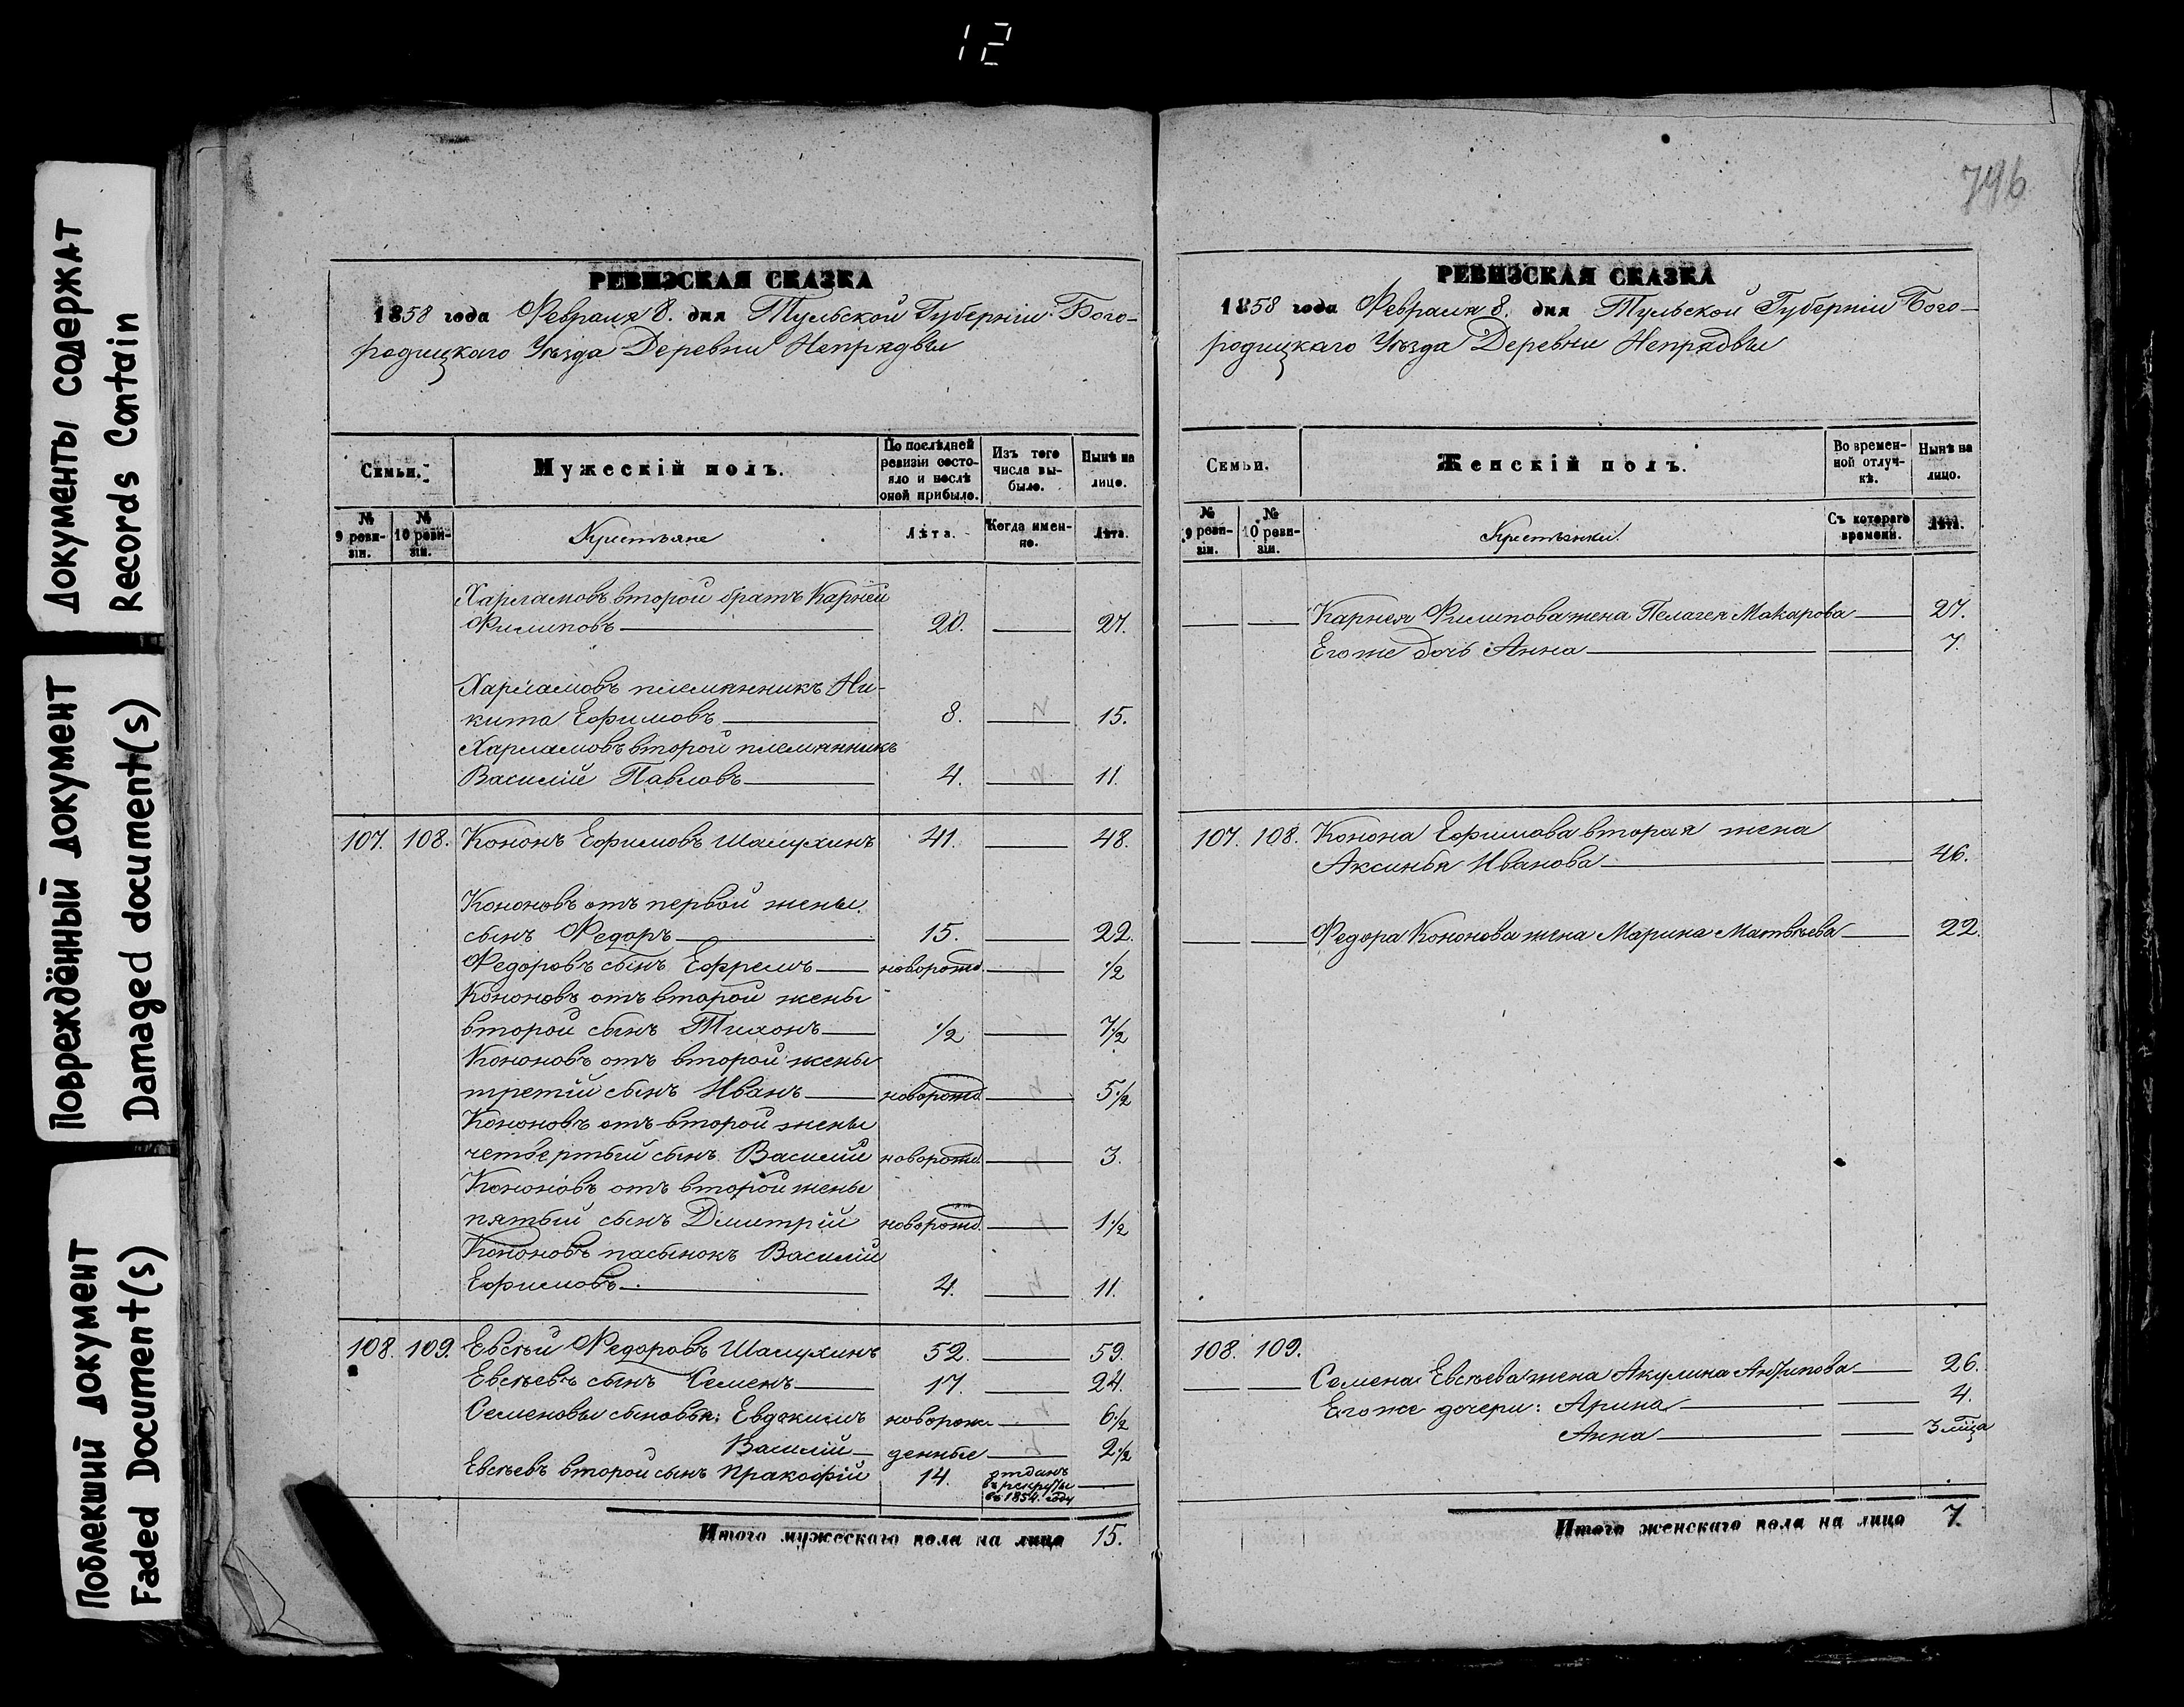 12
Документы содержат
Records Contain
Повреждённый документ
Damaged document(s)
Поблекший документ
Faded Document(s)
РЕВИЗСКАЯ СКАЗКА
1858 года Февраля 8. дня Тульской Губерніи Бого-
родицкаго Уѣзда Деревни Непрядвы
Семьи. Мужескій полъ. По послѣдней ревизіи состояло и послѣ оной прибыло. Изъ того числа выбыло. Нынѣ на лицо.
№ 9 ревизіи. № 10 ревизіи. Крестьяне Лѣта. Когда именно. Лѣта.
Харламовъ второй братъ Карней
Филиповъ 20. 27.
Харламовъ племянникъ Ни-
кита Ефимовъ 8. 15.
Харламовъ второй племянникъ
Василій Павловъ 4. 11.
107. 108. Кононъ Ефимовъ Шалухинъ 41. 48.
Кононовъ отъ первой жены
сынъ Федоръ 15. 22.
Федоровъ сынъ Ефремъ новорожд. 1/2
Кононовъ отъ второй жены
второй сынъ Тихонъ 1/2 7 1/2
Кононовъ отъ второй жены
третій сынъ Иванъ новорожд. 5 1/2
Кононовъ отъ второй жены
четвертый сынъ Василій новорожд. 3.
Кононовъ отъ второй жены
пятый сынъ Дмитрій новорожд. 1 1/2
Кононовъ пасынокъ Василій
Ефимовъ 4. 11.
108. 109. Евсѣй Федоровъ Шалухинъ 52. 59.
Евсѣевъ сынъ Семенъ 17. 24.
Семеновы сыновья: Евдокимъ новорож- 6 1/2
Василій денные 2 1/2
Евсѣевъ второй сынъ Пракофій 14. отданъ
въ рекруты
въ 1854. году
Итого мужескаго пола на лицо 15.
796
РЕВИЗСКАЯ СКАЗКА
1858 года Февраля 8. дня Тульской Губерніи Бого-
родицкаго Уѣзда Деревни Непрядвы
Семьи. Женскій полъ. Во временной отлучкѣ. Нынѣ на лицо.
№ 9 ревизіи. № 10 ревизіи. Крестьянки. Съ котораго времени. Лѣта.
Карнея Филипова жена Пелагея Макарова 27.
Его же дочь Анна 7.
107. 108. Конона Ефимова вторая жена
Аксинья Иванова 46.
Федора Кононова жена Марина Матвѣева 22.
108. 109.
Семена Евсѣева жена Акулина Антипова 26.
Его же дочери: Арина 4.
Анна 3 мца
Итого женскаго пола на лицо 7.